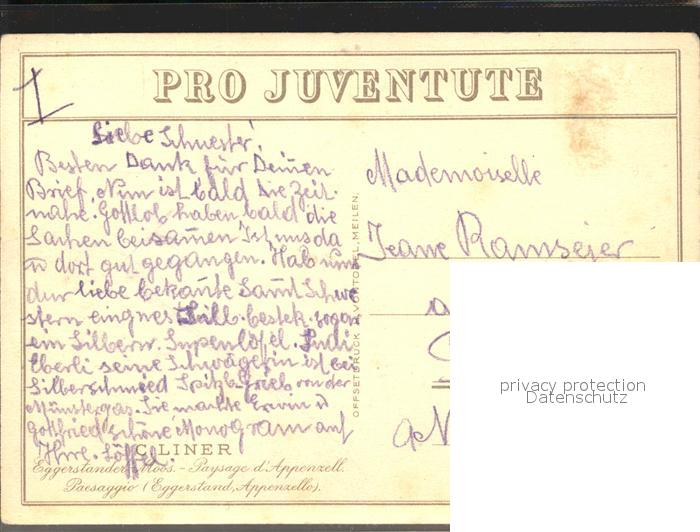 1
PRO JUVENTUTE
Liebe Schwester!
Besten Dank für Deinen
Brief. Nun ist bald die Zeit
nahe. Gottlob haben bald die
Sachen beisamen Ist uns da
u dort gut gegangen. Hab nun
dur liebe bekante Samt Schwe
stern eingnes Silb. bestek. sogar
ein Silbern. Supenlöfel.
Eberli seine Schwägerin ist bei
Silberschmied von der
Münstergas. Sie machte Erwin u
Gottfried schöne Monogram auf
Ihre Löffel.
C. LINER
Eggerstander Moos. - Paysage d'Appenzell.
Paesaggio (Eggerstand, Appenzello).
OFFSETDRUCK A. VONTOBEL, MEILEN.
Mademoiselle
Jeane Ramseier
privacy protection
Datenschutz